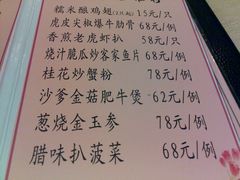 糯米酿鸡翅(2只起)15元/只
虎皮尖椒爆牛肋骨 68元/例
香煎老虎虾扒 58元/只
烧汁脆瓜炒客家鱼片 68元/例
桂花炒蟹粉 78元/例
沙爹金菇肥牛煲 62元/例
葱烧金玉参 78元/例
腊味扒菠菜 68元/例